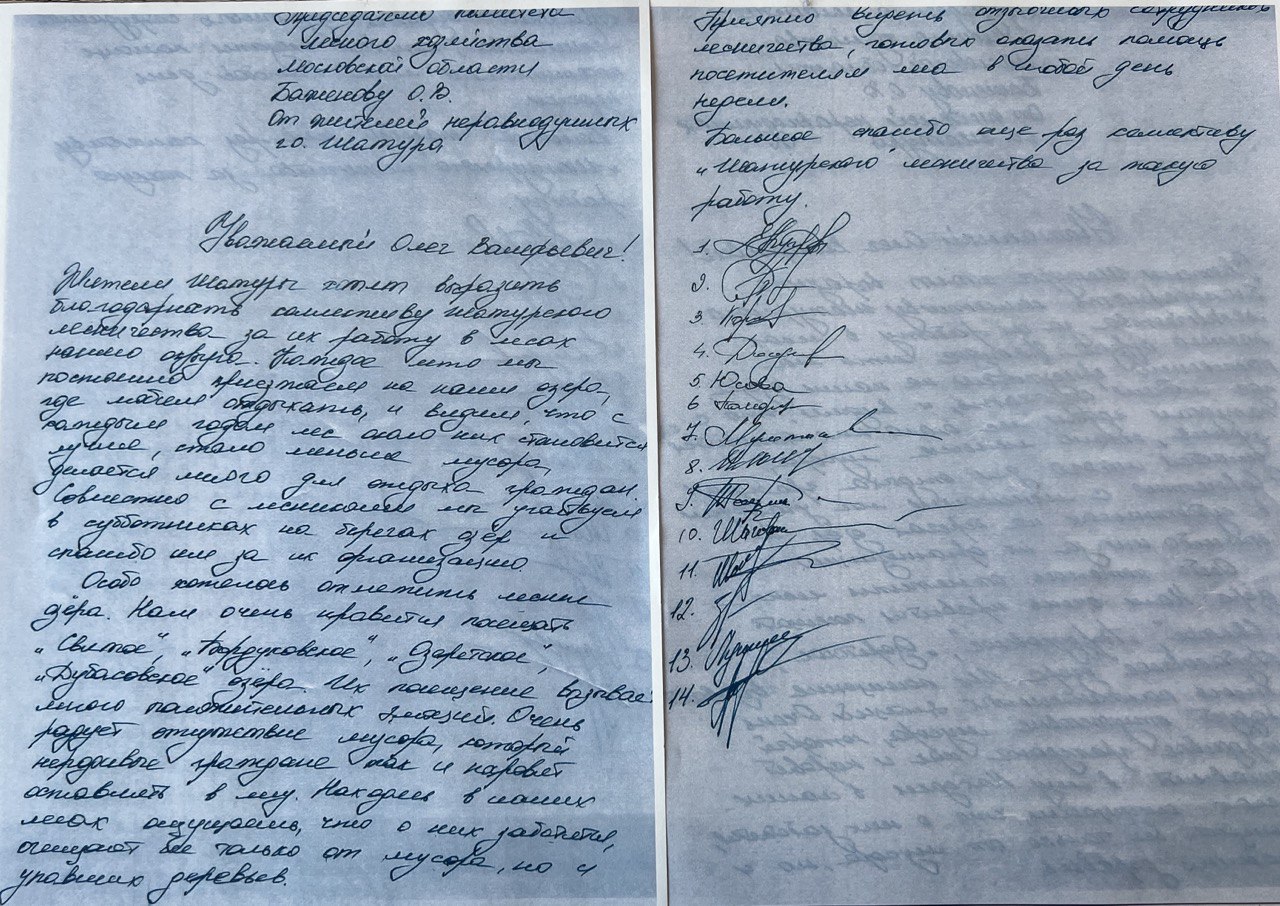 Председателю комитета
лесного хозяйства
Московской области
Баженову О.В.
от жителей неравнодушных
г.о. Шатура
Уважаемый Олег Валерьевич!
Жители Шатуры хотят выразить
благодарность коллективу Шатурского
лесничества за их работу в лесах
нашего округа. Каждое лето мы
постоянно приезжаем на наши озера,
где любим отдыхать, и видим, что с
каждым годом лес около них становится
лучше, стало меньше мусора,
делается много для отдыха граждан.
Совместно с лесниками мы участвуем
в субботниках на берегах озёр и
спасибо им за их организацию.
Особо хотелось отметить лесные
озёра. Нам очень нравится посещать
„Святое", „Бордуковское", „Озерецкое",
„Дубасовское" озёра. Их посещение вызывает
много положительных эмоций. Очень
радует отсутствие мусора, который
нерадивые граждане так и норовят
оставлять в лесу. Находясь в наших
лесах ощущаешь, что о них заботятся,
очищают не только от мусора, но и
упавших деревьев.
Приятно видеть отзывчивых сотрудников
лесничества, готовых оказать помощь
посетителям леса в любой день
недели.
Большое спасибо еще раз коллективу
„Шатурского" лесничества за такую
работу.
1.
2.
3.
4.
5.
6
7.
8.
9.
10.
11.
12.
13.
14.